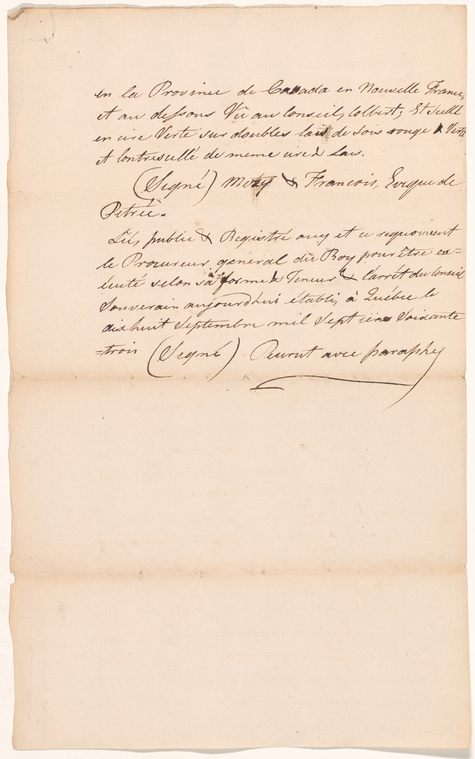 en la Province de Canada en Nouvelle France,
et au dessous Vû au Conseil, Colbert; Et scellé
en cire Verte sur doubles lais de Soie rouge & Verte
et contrescellé de meme cire & Lais.
(Signé) Mezy & Francois, Evêque de
Petrée.
Lû, publié & Registré ouy et ce requerrent
le Procureur général du Roy pour être ex=
écuté selon sa forme & Teneur & l'arrêt du Conseil
Souverain aujourd'hui établi, à Québec le
dix huit Septembre mil Sept cens Soixante
=trois (Signé) Peuvret avec paraphe